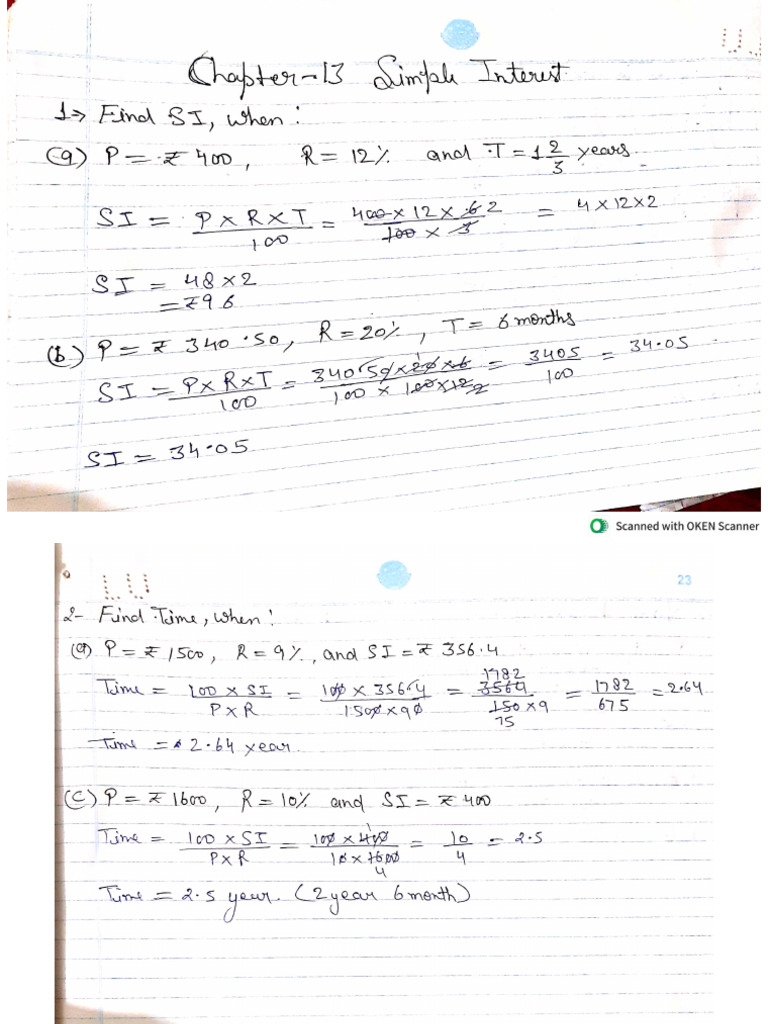 Chapter-13 Simple Interest
1⇒ Find SI, when:
(a) P = ₹ 400, R = 12% and T = 1 2/3 years
SI = P × R × T / 100 = 400 × 12 × 6 2 / 100 × 3 = 4 × 12 × 2
SI = 48 × 2
= ₹96
(b) P = ₹ 340.50, R = 20%, T = 6 months
SI = P × R × T / 100 = 34050 × 20 × 6 / 100 × 100 × 12 2 = 3405 / 100 = 34.05
SI = 34.05
Scanned with OKEN Scanner
23
2- Find Time, when:
(a) P = ₹ 1500, R = 9%, and SI = ₹ 356.4
Time = 100 × SI / P × R = 100 × 356.4 / 1500 × 90 = 1782 3564 / 150 × 9 75 = 1782 / 675 = 2.64
Time = 2.64 year
(c) P = ₹ 1600, R = 10% and SI = ₹ 400
Time = 100 × SI / P × R = 100 × 400 1 / 10 × 1600 4 = 10 / 4 = 2.5
Time = 2.5 year. (2 year 6 month)